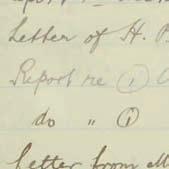 Letter of H.
Report re ①
do " ①
Letter from